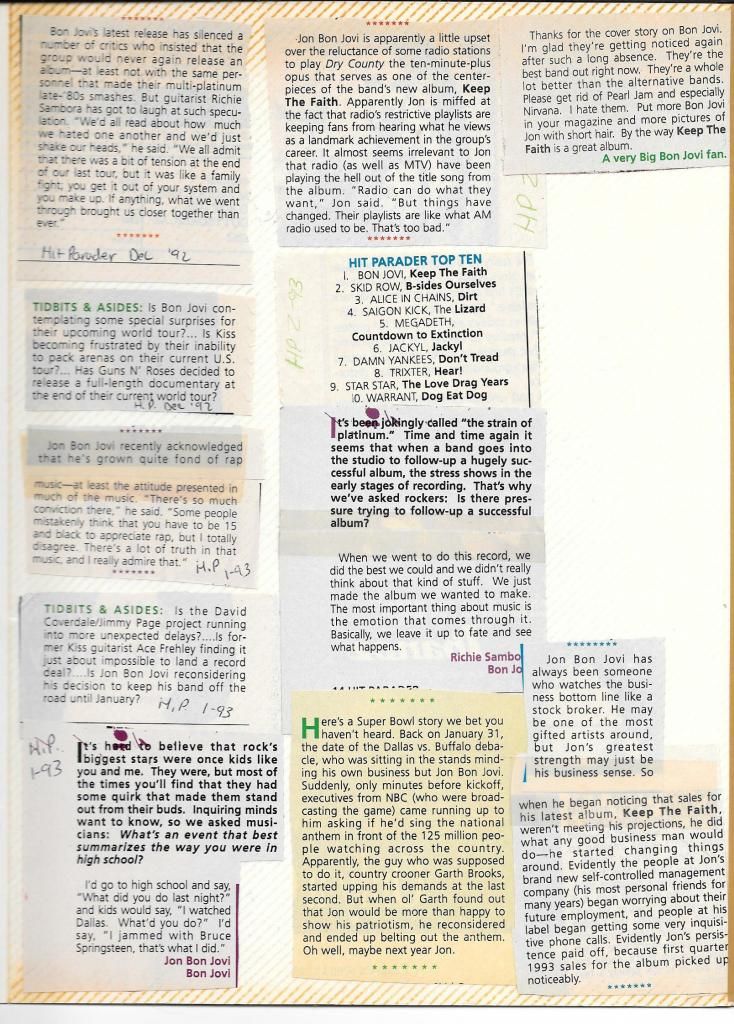 Bon Jovi's latest release has silenced a
number of critics who insisted that the
group would never again release an
album—at least not with the same per-
sonnel that made their multi-platinum
late-'80s smashes. But guitarist Richie
Sambora has got to laugh at such specu-
lation. "We'd all read about how much
we hated one another and we'd just
shake our heads," he said. "We all admit
that there was a bit of tension at the end
of our last tour, but it was like a family
fight; you get it out of your system and
you make up. If anything, what we went
through brought us closer together than
ever."
Hit Parader Dec '92
TIDBITS & ASIDES: Is Bon Jovi con-
templating some special surprises for
their upcoming world tour?... Is Kiss
becoming frustrated by their inability
to pack arenas on their current U.S.
tour?... Has Guns N' Roses decided to
release a full-length documentary at
the end of their current world tour?
H.P. Dec '92
Jon Bon Jovi recently acknowledged
that he's grown quite fond of rap
music—at least the attitude presented in
much of the music. "There's so much
conviction there," he said. "Some people
mistakenly think that you have to be 15
and black to appreciate rap, but I totally
disagree. There's a lot of truth in that
music, and I really admire that."
H.P 1-93
TIDBITS & ASIDES: Is the David
Coverdale/Jimmy Page project running
into more unexpected delays?....Is for-
mer Kiss guitarist Ace Frehley finding it
just about impossible to land a record
deal?....Is Jon Bon Jovi reconsidering
his decision to keep his band off the
road until January?
H.P. 1-93
H.P.
1-93
It's hard to believe that rock's
biggest stars were once kids like
you and me. They were, but most of
the times you'll find that they had
some quirk that made them stand
out from their buds. Inquiring minds
want to know, so we asked musi-
cians: What's an event that best
summarizes the way you were in
high school?
I'd go to high school and say,
"What did you do last night?"
and kids would say, "I watched
Dallas. What'd you do?" I'd
say, "I jammed with Bruce
Springsteen, that's what I did."
Jon Bon Jovi
Bon Jovi
Jon Bon Jovi is apparently a little upset
over the reluctance of some radio stations
to play Dry County the ten-minute-plus
opus that serves as one of the center-
pieces of the band's new album, Keep
The Faith. Apparently Jon is miffed at
the fact that radio's restrictive playlists are
keeping fans from hearing what he views
as a landmark achievement in the group's
career. It almost seems irrelevant to Jon
that radio (as well as MTV) have been
playing the hell out of the title song from
the album. "Radio can do what they
want," Jon said. "But things have
changed. Their playlists are like what AM
radio used to be. That's too bad."
HP 2-93
HIT PARADER TOP TEN
1. BON JOVI, Keep The Faith
2. SKID ROW, B-sides Ourselves
3. ALICE IN CHAINS, Dirt
4. SAIGON KICK, The Lizard
5. MEGADETH,
Countdown to Extinction
6. JACKYL, Jackyl
7. DAMN YANKEES, Don't Tread
8. TRIXTER, Hear!
9. STAR STAR, The Love Drag Years
10. WARRANT, Dog Eat Dog
It's been jokingly called "the strain of
platinum." Time and time again it
seems that when a band goes into
the studio to follow-up a hugely suc-
cessful album, the stress shows in the
early stages of recording. That's why
we've asked rockers: Is there pres-
sure trying to follow-up a successful
album?
When we went to do this record, we
did the best we could and we didn't really
think about that kind of stuff. We just
made the album we wanted to make.
The most important thing about music is
the emotion that comes through it.
Basically, we leave it up to fate and see
what happens.
Richie Sambo
Bon Jo
Here's a Super Bowl story we bet you
haven't heard. Back on January 31,
the date of the Dallas vs. Buffalo deba-
cle, who was sitting in the stands mind-
ing his own business but Jon Bon Jovi.
Suddenly, only minutes before kickoff,
executives from NBC (who were broad-
casting the game) came running up to
him asking if he'd sing the national
anthem in front of the 125 million peo-
ple watching across the country.
Apparently, the guy who was supposed
to do it, country crooner Garth Brooks,
started upping his demands at the last
second. But when ol' Garth found out
that Jon would be more than happy to
show his patriotism, he reconsidered
and ended up belting out the anthem.
Oh well, maybe next year Jon.
Thanks for the cover story on Bon Jovi.
I'm glad they're getting noticed again
after such a long absence. They're the
best band out right now. They're a whole
lot better than the alternative bands.
Please get rid of Pearl Jam and especially
Nirvana. I hate them. Put more Bon Jovi
in your magazine and more pictures of
Jon with short hair. By the way Keep The
Faith is a great album.
A very Big Bon Jovi fan.
HP 2
Jon Bon Jovi has
always been someone
who watches the busi-
ness bottom line like a
stock broker. He may
be one of the most
gifted artists around,
but Jon's greatest
strength may just be
his business sense. So
when he began noticing that sales for
his latest album, Keep The Faith,
weren't meeting his projections, he did
what any good business man would
do—he started changing things
around. Evidently the people at Jon's
brand new self-controlled management
company (his most personal friends for
many years) began worrying about their
future employment, and people at his
label began getting some very inquisi-
tive phone calls. Evidently Jon's persis-
tence paid off, because first quarter
1993 sales for the album picked up
noticeably.